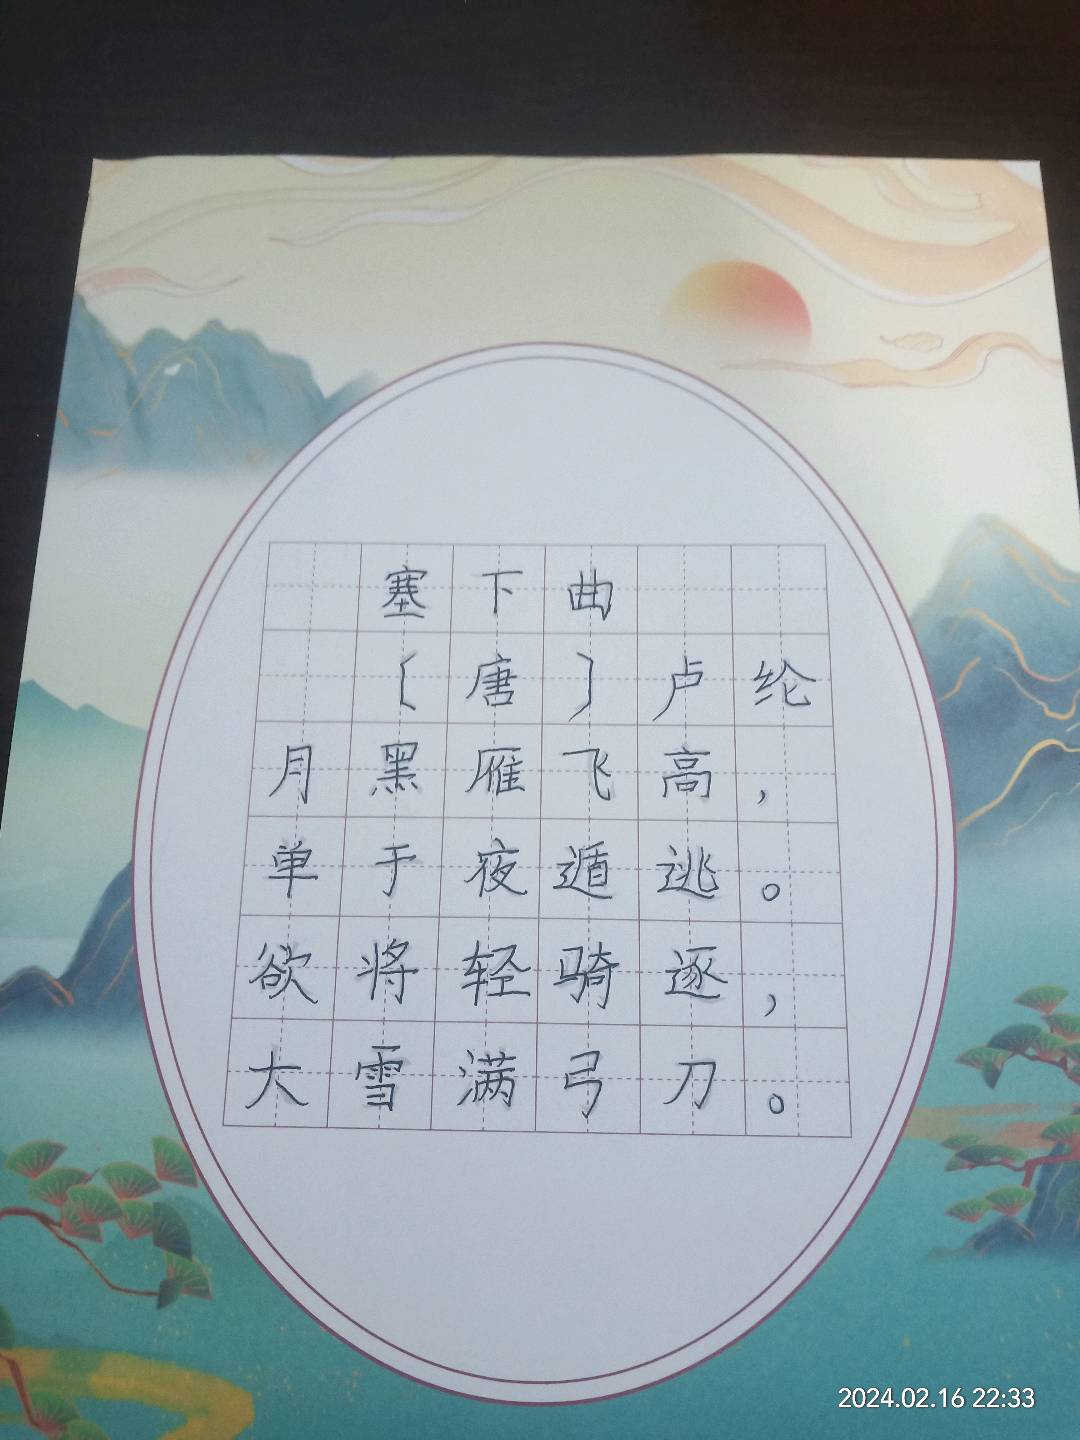 塞下曲
〔唐〕卢纶
月黑雁飞高，
单于夜遁逃。
欲将轻骑逐，
大雪满弓刀。
2024.02.16 22:33